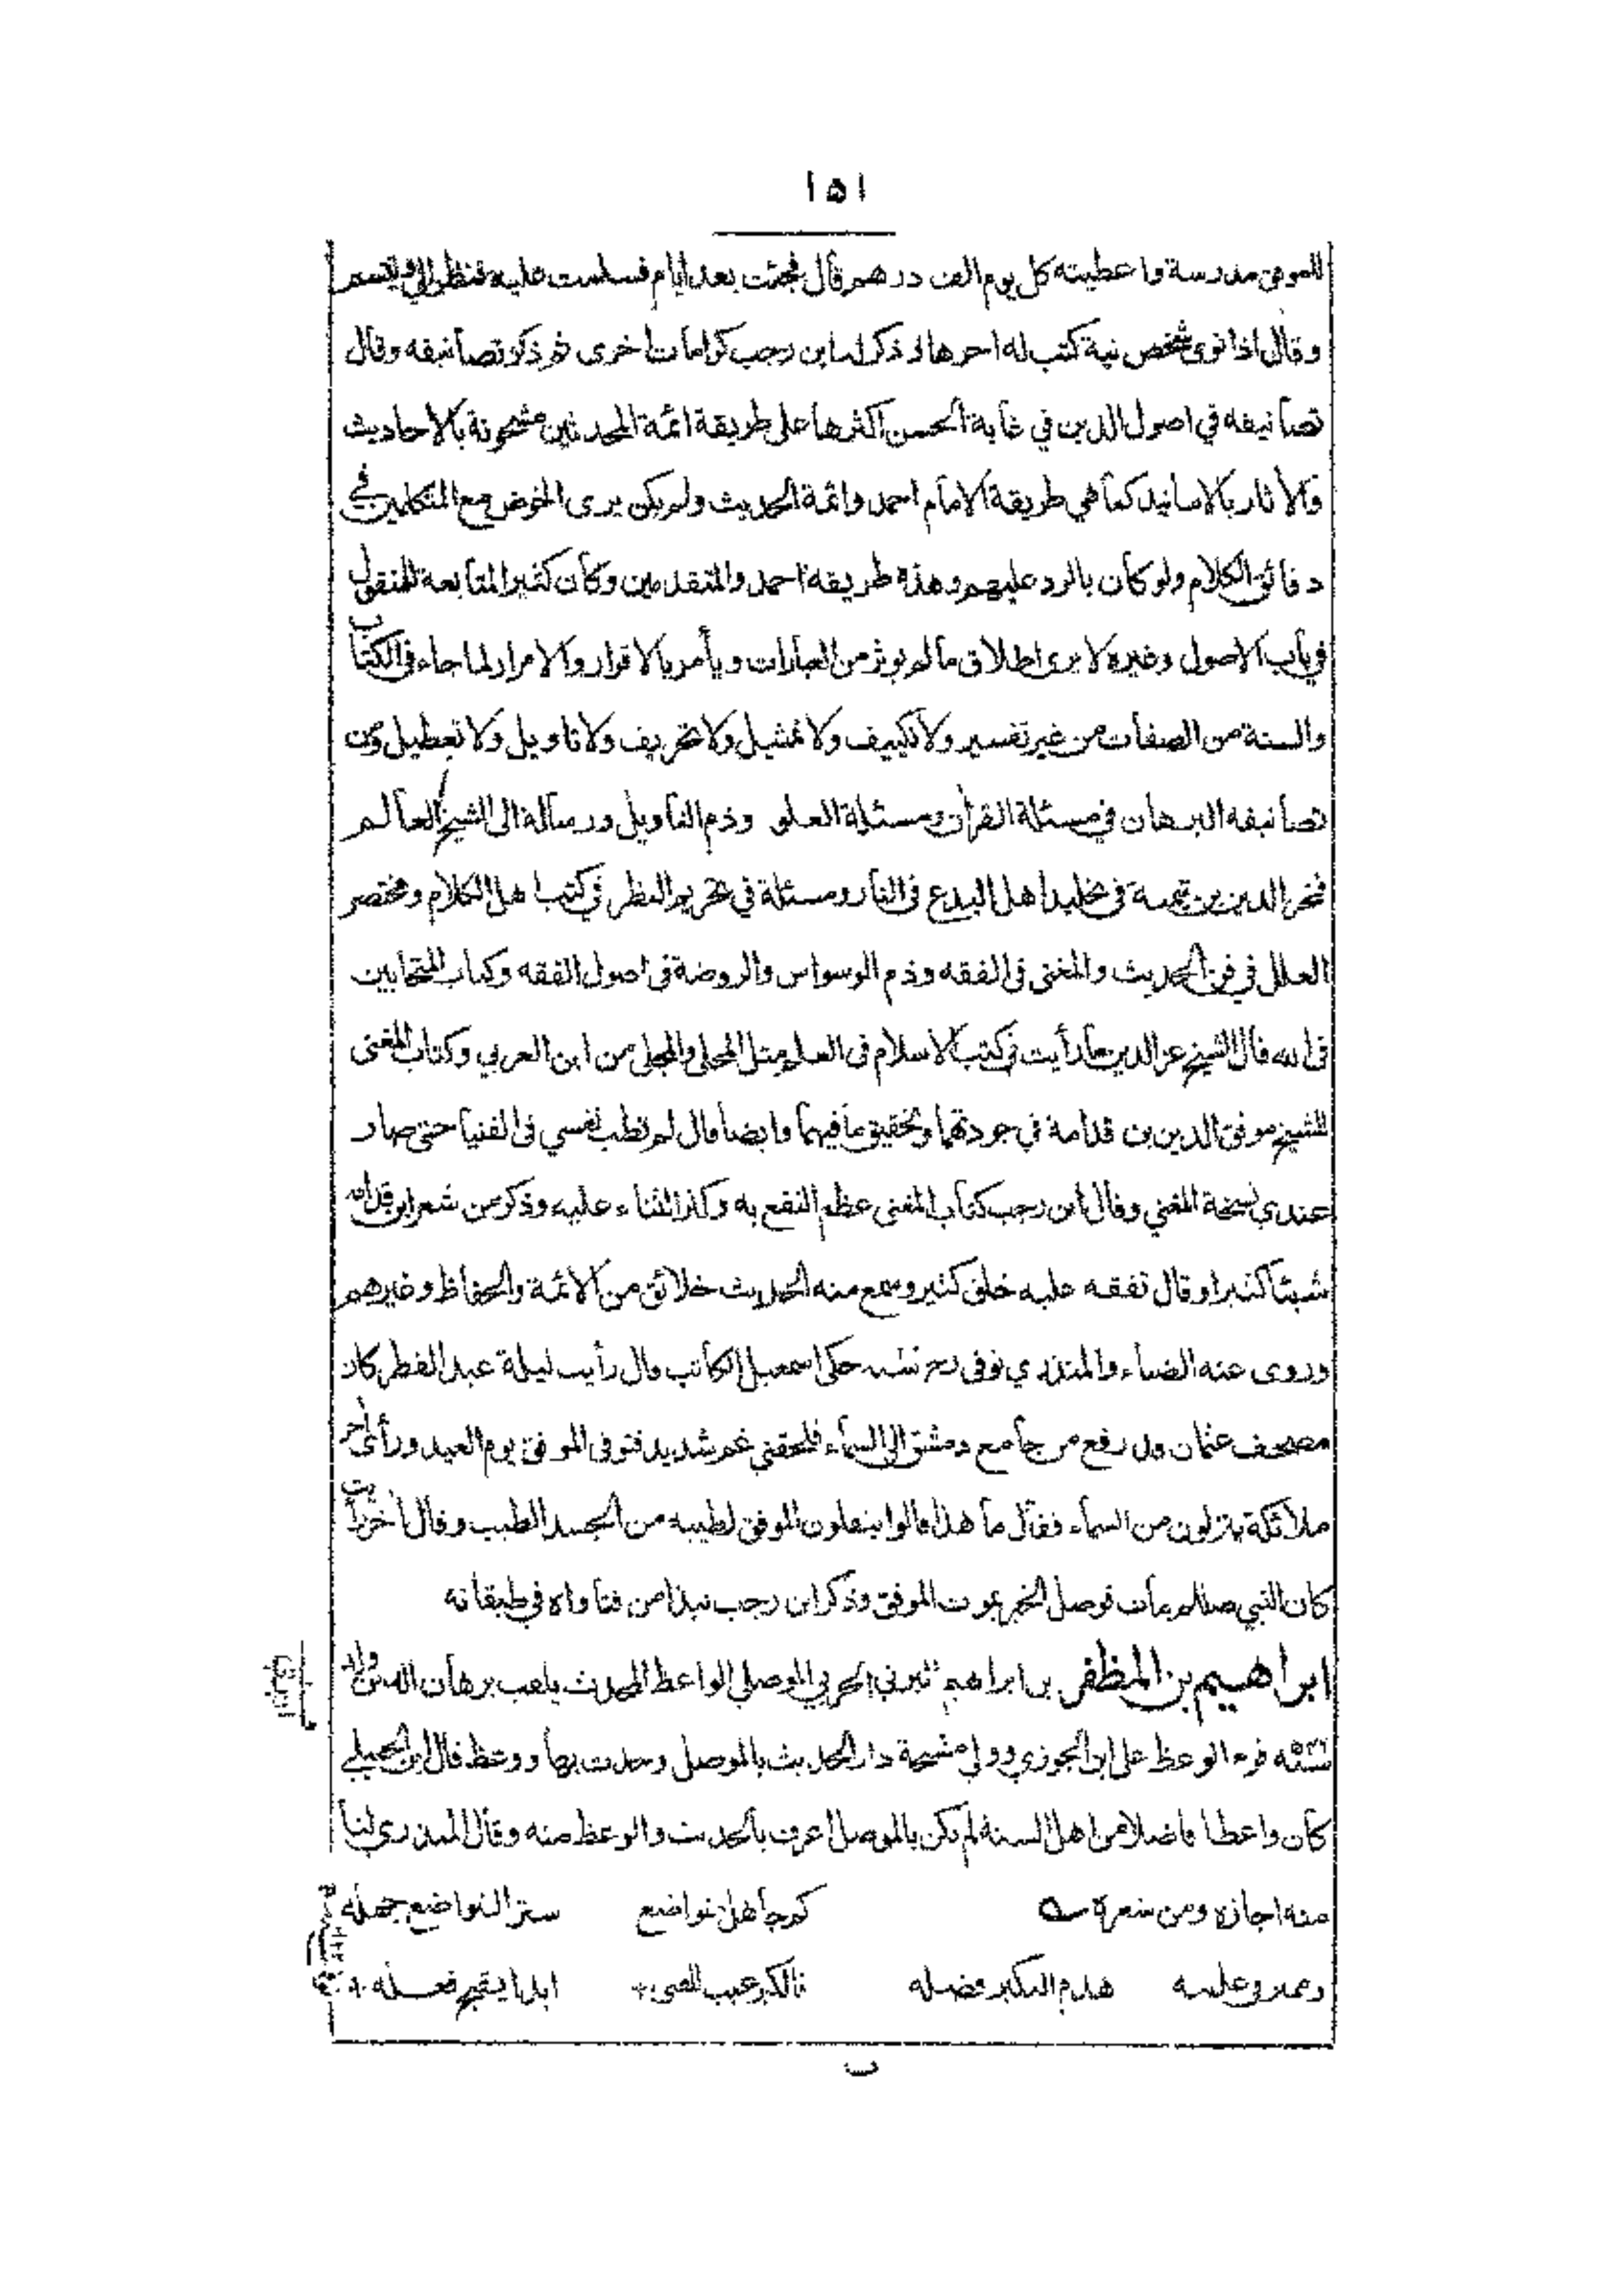 ١٥١
للموفق مدرسة واعطيته كل يوم الف درهم قال فجئت بعد ايام فسلمت عليه فنظر الي وتبسم
وقال اذا نوى شخص نية كتب له اجرها وذكر له ابن رجب كرامات اخرى ثم ذكر تصانيفه وقال
تصانيفه في اصول الدين في غاية الحسن اكثرها على طريقة ائمة المحدثين مشحونة بالاحاديث
والآثار بالاسانيد كما هي طريقة الامام احمد وائمة الحديث ولم يكن يرى الخوض مع المتكلمين في
دقائق الكلام ولو كان بالرد عليهم وهذه طريقة احمد والمتقدمين وكان كثير المتابعة للمنقول
في باب الاصول وغيره لا يرى اطلاق ما لم يؤثر من العبارات ويأمر بالاقرار والامرار لما جاء في الكتاب
والسنة من الصفات من غير تفسير ولا تكييف ولا تمثيل ولا تحريف ولا تاويل ولا تعطيل ومن
تصانيفه البرهان في مسئلة القرآن ومسئلة العلو وذم التأويل ورسالة الى الشيخ العالم
فخر الدين بن تيمية في تخليد اهل البدع في النار ومسئلة في تحريم النظر في كتب اهل الكلام ومختصر
العلل في فن الحديث والمغنى فى الفقه وذم الوسواس والروضة فى اصول الفقه وكتاب المتحابين
فى الله قال الشيخ عز الدين ما رأيت في كتب الاسلام فى العلم مثل المحلى والمجلى من ابن العربي وكتاب المغنى
للشيخ موفق الدين بن قدامة في جودتهما وتحقيق ما فيهما وايضا قال لم تطب نفسي فى الفتيا حتى صار
عندي نسخة المغني وقال ابن رجب كتاب المغنى عظم النفع به وكثر الثناء عليه وذكر من شعر ابن قدامه
شيئا كثيرا وقال تفقه عليه خلق كثير وسمع منه الحديث خلائق من الائمة والحفاظ وغيرهم
وروى عنه الضياء والمنذري توفى حكى اسمعيل الكاتب قال رأيت ليلة عيد الفطر كان
مصحف عثمان قد رفع من جامع دمشق الى السماء فلحقني غم شديد فتوفى الموفق يوم العيد ورأى آخر
ملائكة ينزلون من السماء فقال ما هذا قالوا ينقلون الموفق لطيبه من الجسد الطيب وقال آخر رأيت
كان النبي صللم مات فوصل الخبر بموت الموفق وذكر ابن رجب نبذا من فتاواه في طبقاته
ابراهيم بن المظفر بن ابراهيم البرني الحربي الموصلي الواعظ المحدث يلقب برهان الدين ولد
قرء الوعظ على ابن الجوزي وولي مشيخة دار الحديث بالموصل وحدث بها ووعظ قال ابن الحنبلي
كان واعظا فاضلا من اهل السنة لم يكن بالموصل اعرف بالحديث والوعظ منه وقال المنذري لنا
منه اجازه ومن شعره كم جاهل متواضع ستر التواضع جهله
وعلمه هدم التكبر فضله فالكبر عيب للفتى ابدا يقبح فعله
ب